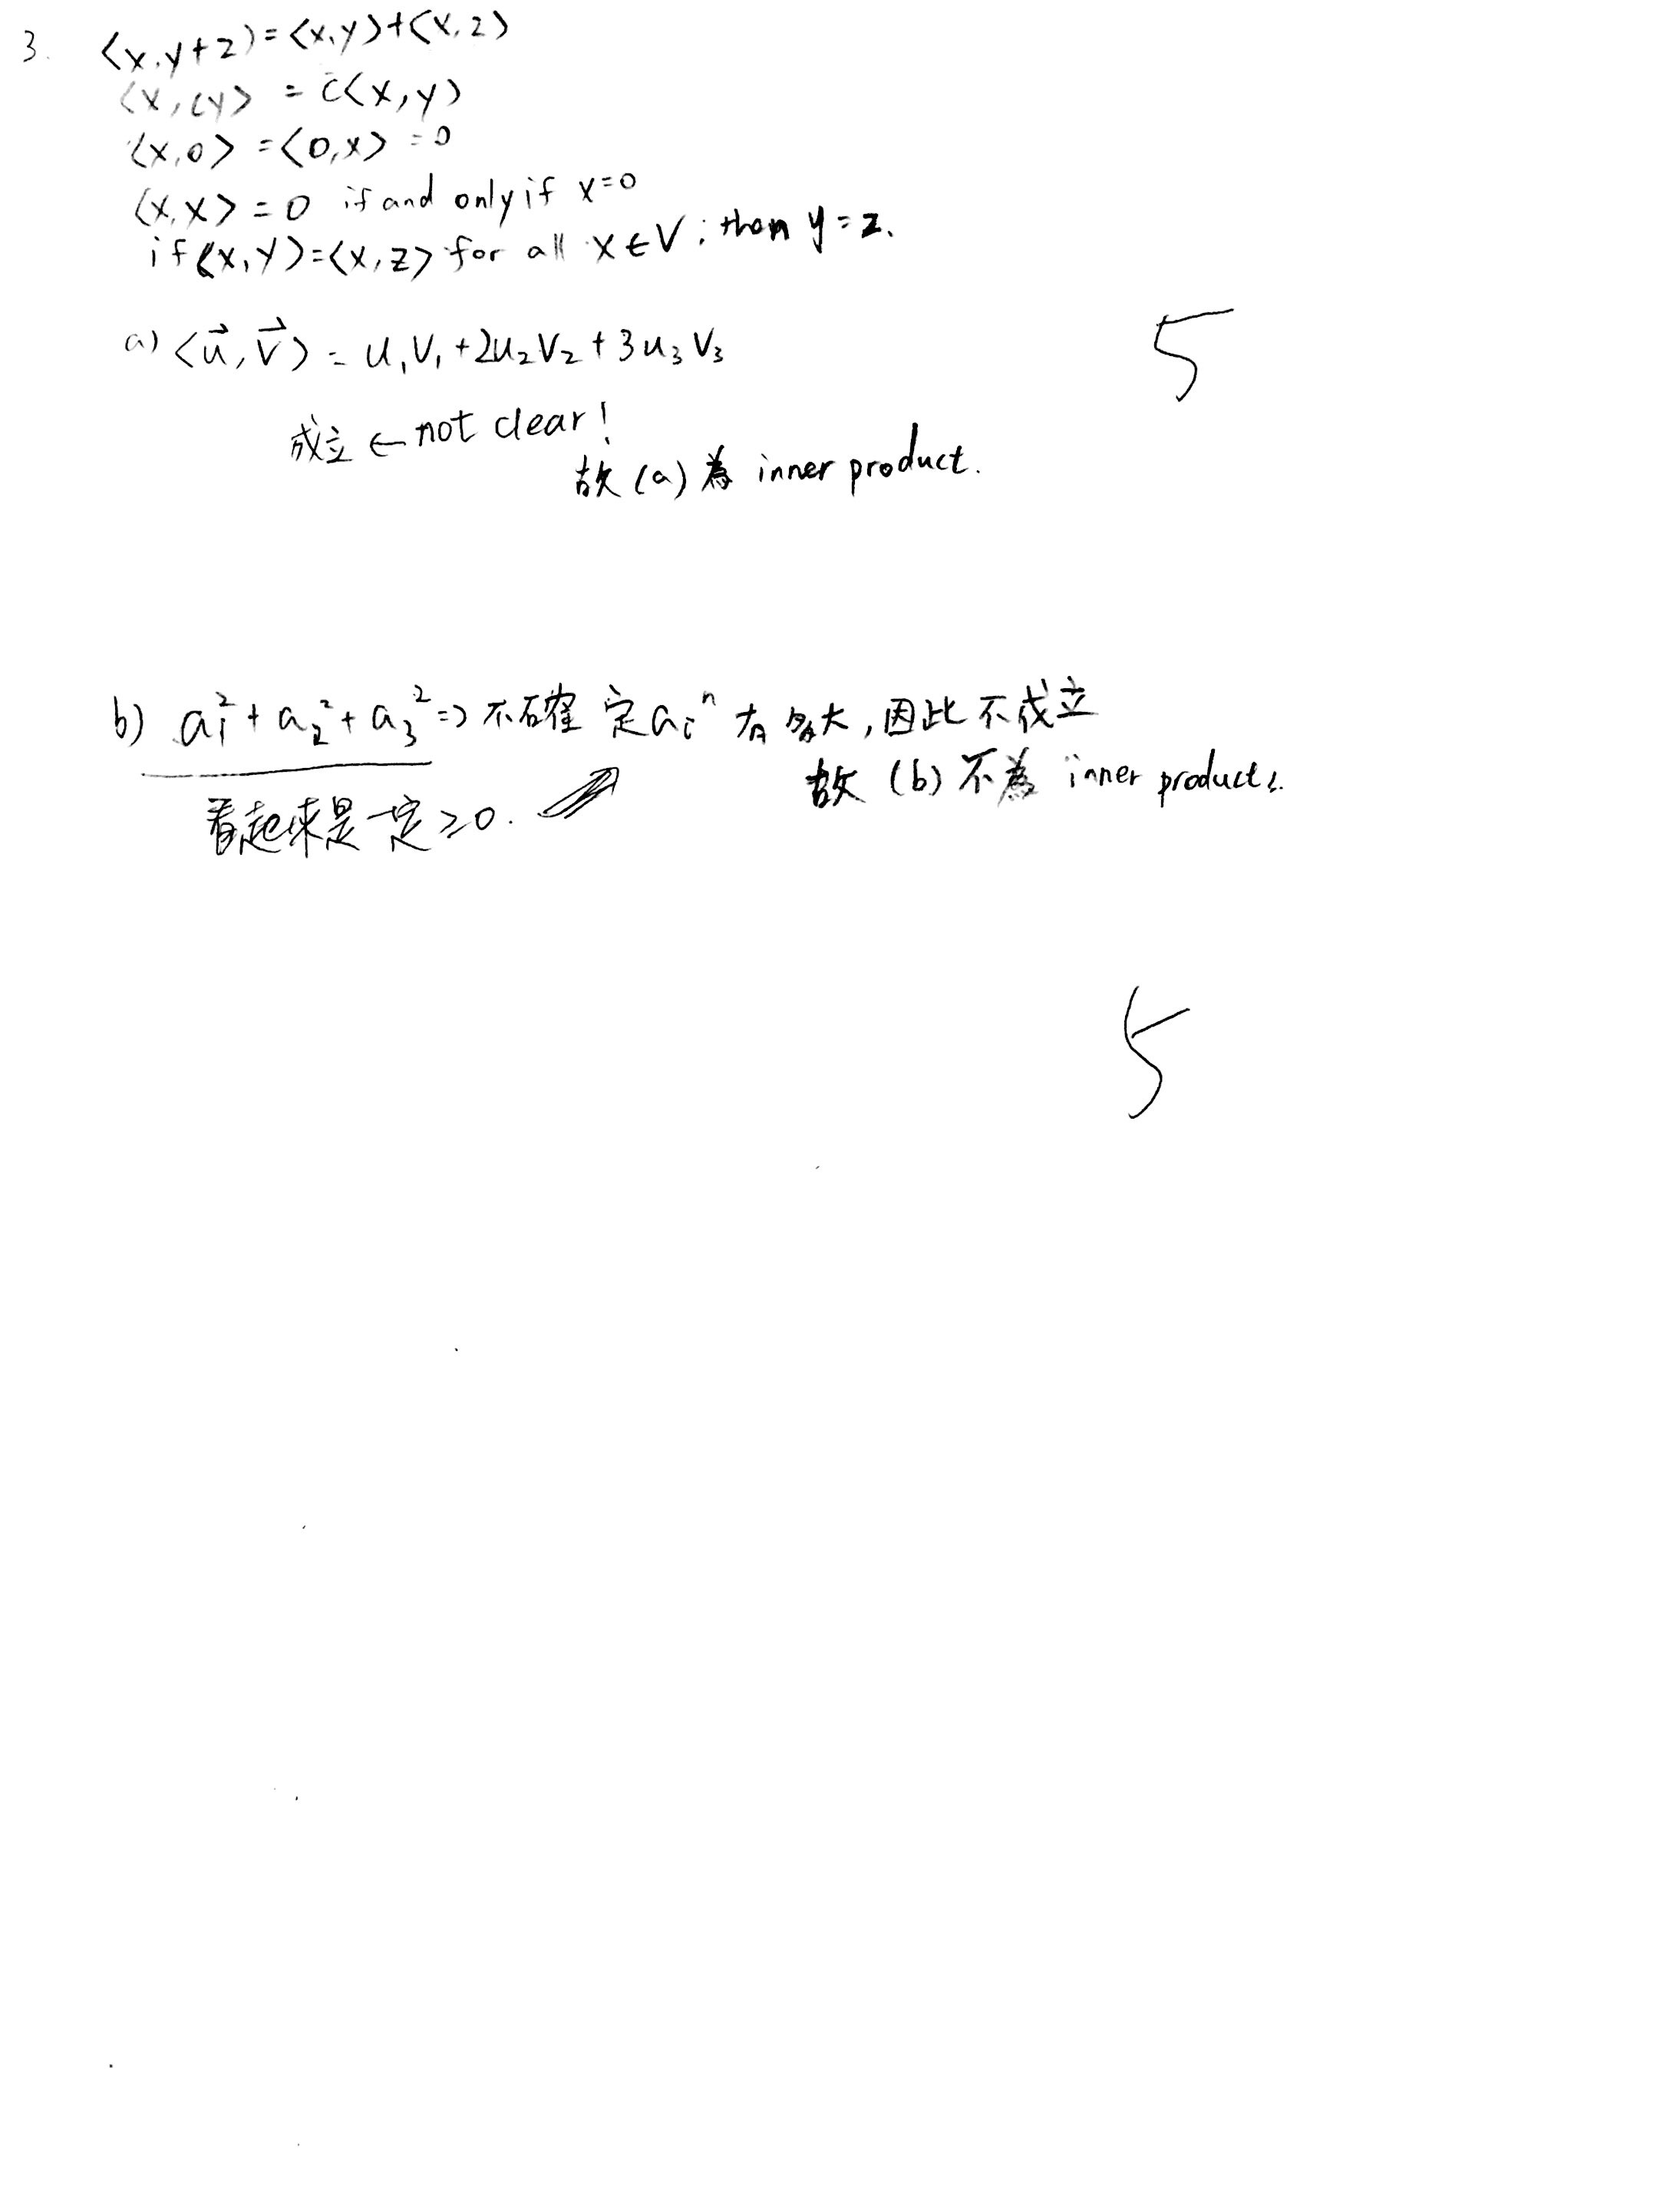 3. <x,y+z)=<x,y>+<x,z>
<x,cy> = c̄<x,y>
<x,0> =<0,x> =0
<x,x> =0 if and only if x=0
if<x,y>=<x,z> for all x∈V, then y=z.
a) <u⃗,v⃗> = u₁v₁+2u₂v₂+3u₃v₃
5
成立 ← not clear!
故 (a) 為 inner product.
b) a₁²+a₂²+a₃² => 不確定aᵢⁿ 有多大,因此不成立
故 (b) 不為 inner products.
看起來是一定≥0.
5